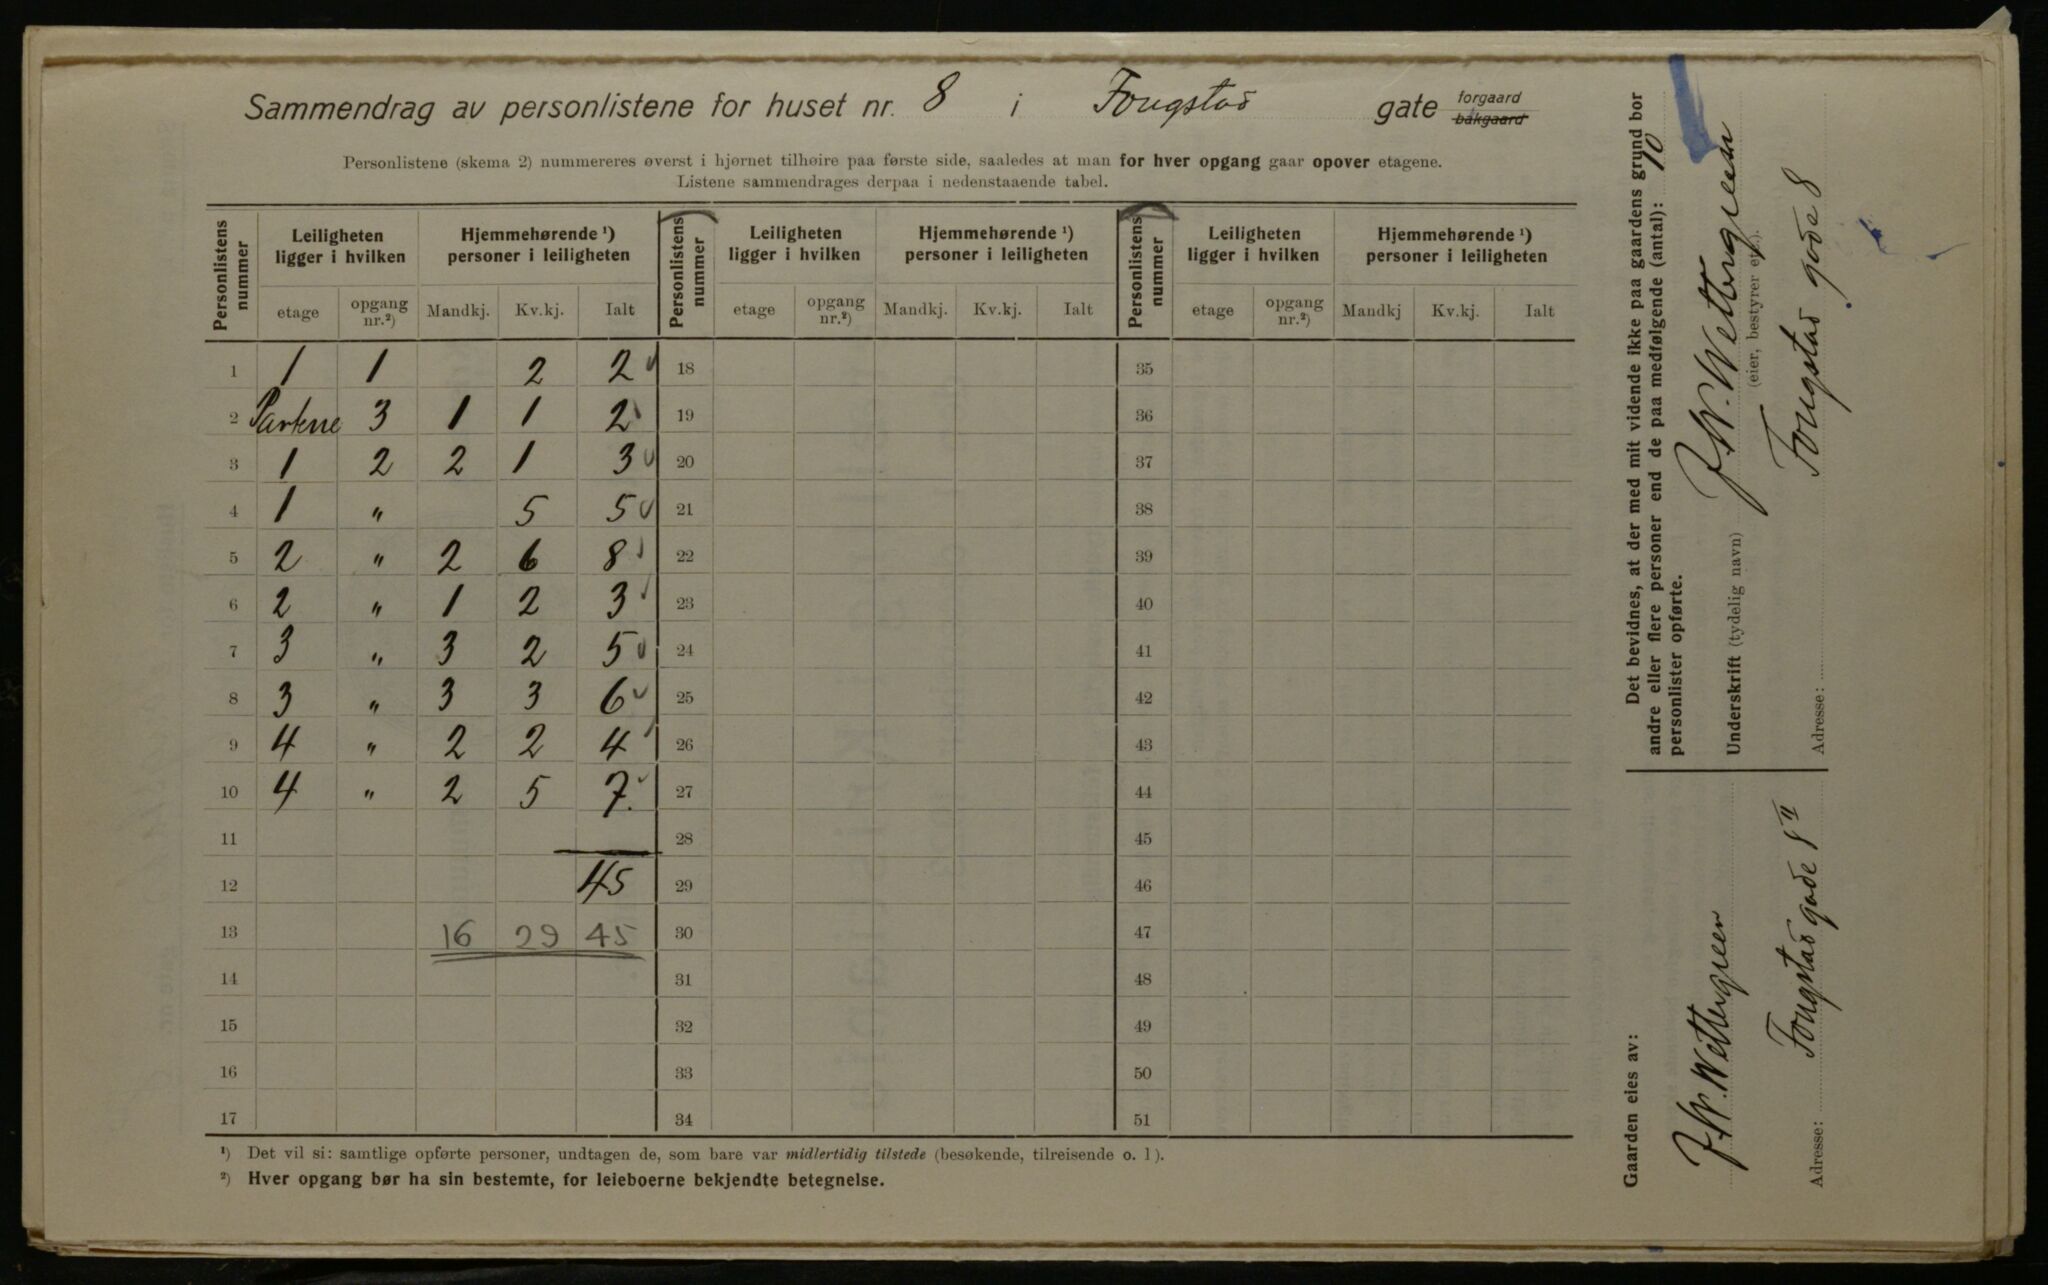 Sammendrag av personlistene for huset nr. 8 i Fougstad gate forgaard bakgaard
Personlistene (skema 2) nummereres øverst i hjørnet tilhøire paa første side, saaledes at man for hver opgang gaar opover etagene.
Listene sammendrages derpaa i nedenstaaende tabel.
Personlistens nummer | Leiligheten ligger i hvilken | Hjemmehørende ¹) personer i leiligheten | Personlistens nummer | Leiligheten ligger i hvilken | Hjemmehørende ¹) personer i leiligheten | Personlistens nummer | Leiligheten ligger i hvilken | Hjemmehørende ¹) personer i leiligheten
etage | opgang nr.²) | Mandkj. | Kv.kj. | Ialt | etage | opgang nr.²) | Mandkj. | Kv.kj. | Ialt | etage | opgang nr.²) | Mandkj | Kv.kj. | Ialt
1 1 1 2 2 18 35
2 Parterre 3 1 1 2 19 36
3 1 2 2 1 3 20 37
4 1 " 5 5 21 38
5 2 " 2 6 8 22 39
6 2 " 1 2 3 23 40
7 3 " 3 2 5 24 41
8 3 " 3 3 6 25 42
9 4 " 2 2 4 26 43
10 4 " 2 5 7. 27 44
11 28 45
12 45 29 46
13 16 29 45 30 47
14 31 48
15 32 49
16 33 50
17 34 51
¹) Det vil si: samtlige opførte personer, undtagen de, som bare var midlertidig tilstede (besøkende, tilreisende o. l).
²) Hver opgang bør ha sin bestemte, for leieboerne bekjendte betegnelse.
Det bevidnes, at der med mit vidende ikke paa gaardens grund bor
andre eller flere personer end de paa medfølgende (antal): 10
personlister opførte.
Underskrift (tydelig navn) J. W. Wettergreen
(eier, bestyrer etc.).
Adresse: Fougstad gade 8
Gaarden eies av:
J. W. Wettergreen
Adresse: Fougstad gade 8 II